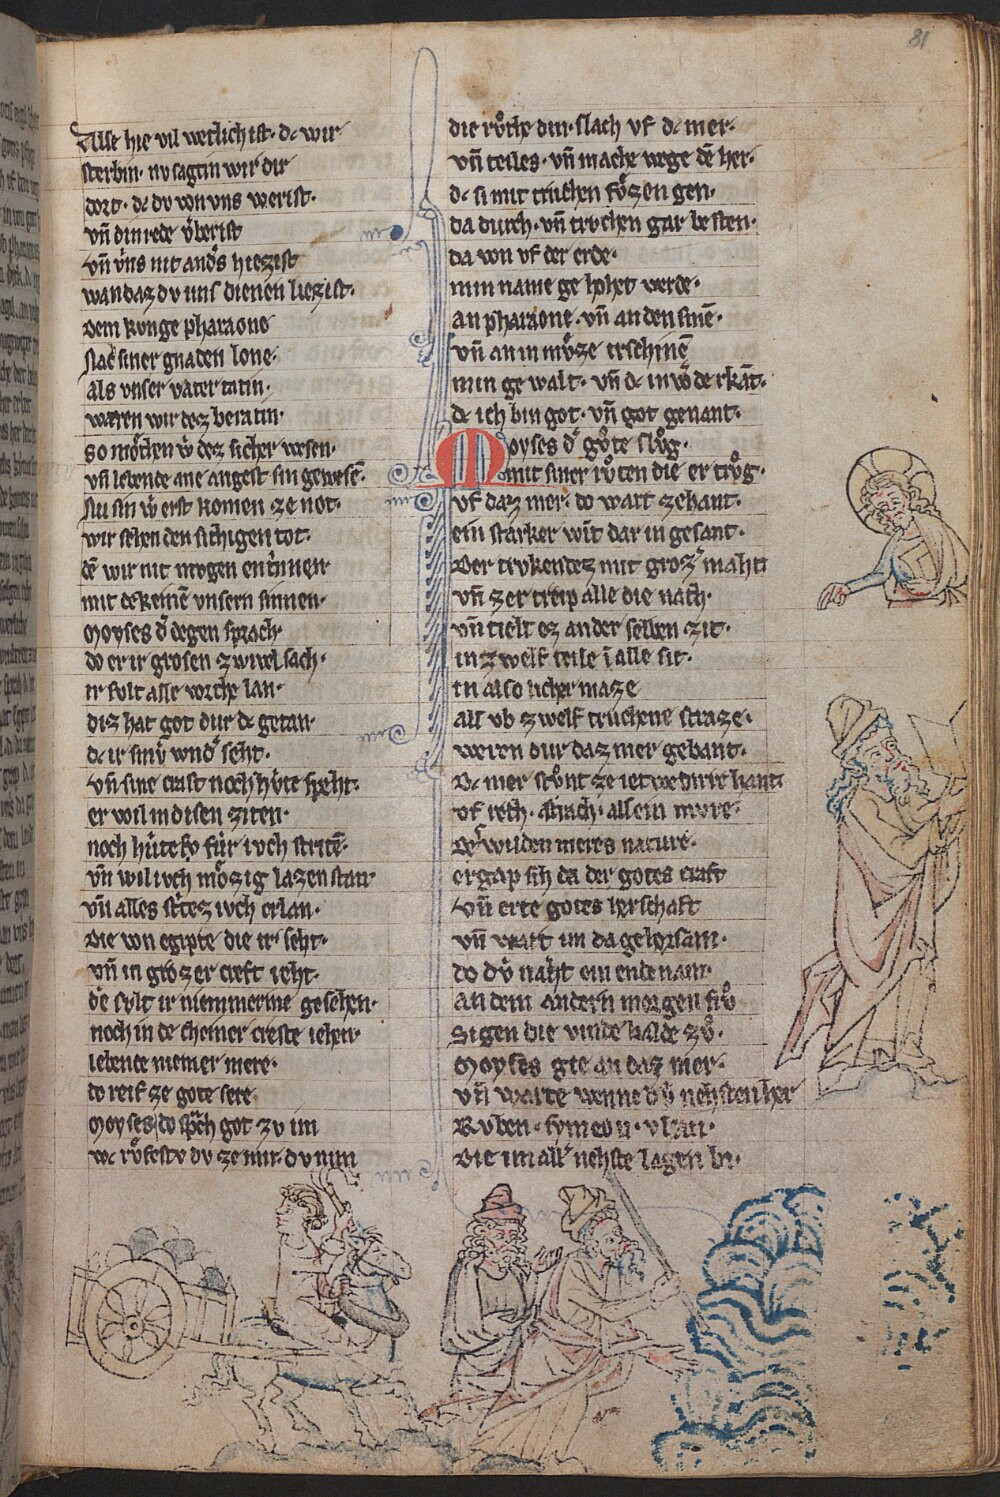 81
Alse hie vil werlich ist· dc wir
sterbin· nv sagtin wir dir
dort· dc dv von vns werist·
vñ din rede v̉berist
vñ v̉ns nit and͛s hiezist
wan daz dv uns dienen liezist·
dem kvnge pharaone
Nach siner gnaden lone·
als vnser vater tatin·
waren wir dez beratin·
so mŏchen w͛ dez sicher wesen·
vñ lebende ane angest sin gewesē·
Nu sin w͛ erst komen ze not·
wir sehen den sichigen tot·
dē wir nit mvgen entrinnen
mit dekeinē vnsern sinnen·
Moyses d͛ degen sprach
do er ir grosen zwivel sach·
ir svlt alle vorhte lan·
diz hat got dur dc getan
dc ir sinv̉ wnd͛ seht·
vñ sine craft noch hv̉te speht·
er wil in disen ziten·
noch hv̉te fv̉r ivch stritē·
vñ wil ivch mv̊zig lazen stan
vñ alles strites ivch erlan·
Die von egipte die ir seht·
vñ in grozer creft ieht·
die svlt ir niemmerme gesehen·
noch in de cheiner crefte iehen·
lebende niemer mere·
do reif ze gote sere
Moyses do sprach got zv im
wc rv̊festv dv ze mir· dv nim
die rv̊the din· slach vf dc mer·
vñ teiles· vñ mache wege dē her·
dc si mit truchen fv̊zen gen·
da durch· vñ trvchen gar besten·
da von vf der erde·
min name ge hohet werde·
an pharaone· vñ an den sinē·
vñ an in mv̊ze erschinē
min ge walt· vñ dc in w͛de rkāt·
dc ich bin got· vñ got genant·
Moyses d͛ gv̊te slv̊g·
mit siner rv̊ten die er trv̊g·
vf daz mer· do wart zehant·
ein starker wīt dar in gesant·
Der trvkendez mit groz͛ maht
vñ zer treip alle die naht·
vñ tielt ez an der selben zit·
in zwelf teile ī alle sit·
in also licher maze
als ob zwelf truchene straze·
weren dur daz mer gebant·
Dc mer stv̊nt ze ietwedirre hant
vf reht· ahach· als ein mvre·
Des wilden meres nature·
ergap sih da der gotes craft
vñ erte gotes herschaft
vñ wart im da gehorsam·
do dv̉ naht ein ende nam·
An dem andern morgen frv̊
Sigen die vinde balde zv̊·
Moyses gie an daz mer·
vñ warte wenne dv̉ nehsten her
Rvben· symeon·
Die im all͛ nehste lagen bi·